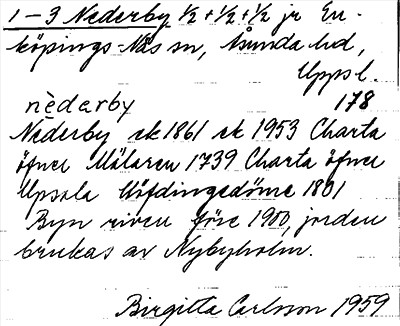 1-3 Nederby ½+½+½ jr En-
köpings-Näs sn, Åsunda hd,
Uppsl.
nèderby 178
Nederby ek 1861 ek 1953 Charta
öfver Mälaren 1739 Charta öfver
Upsala Höfdingedöme 1801
Byn riven före 1900, jorden
brukas av Nybyholm.
Birgitta Carlsson 1959